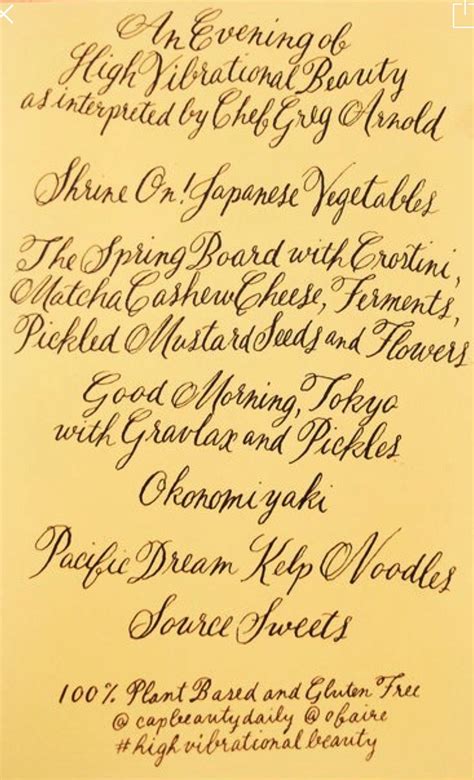 An Evening of
High Vibrational Beauty
as interpreted by Chef Greg Arnold
Shrine On! Japanese Vegetables
The Spring Board with Crostini,
Matcha Cashew Cheese, Ferments,
Pickled Mustard Seeds and Flowers
Good Morning, Tokyo
with Gravlax and Pickles
Okonomiyaki
Pacific Dream Kelp Noodles
Source Sweets
100% Plant Based and Gluten Free
@capbeautydaily @ofaire
#highvibrationalbeauty